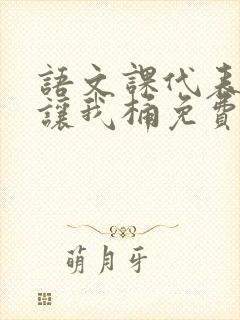 語文課代表
讓我桶免費
萌月牙